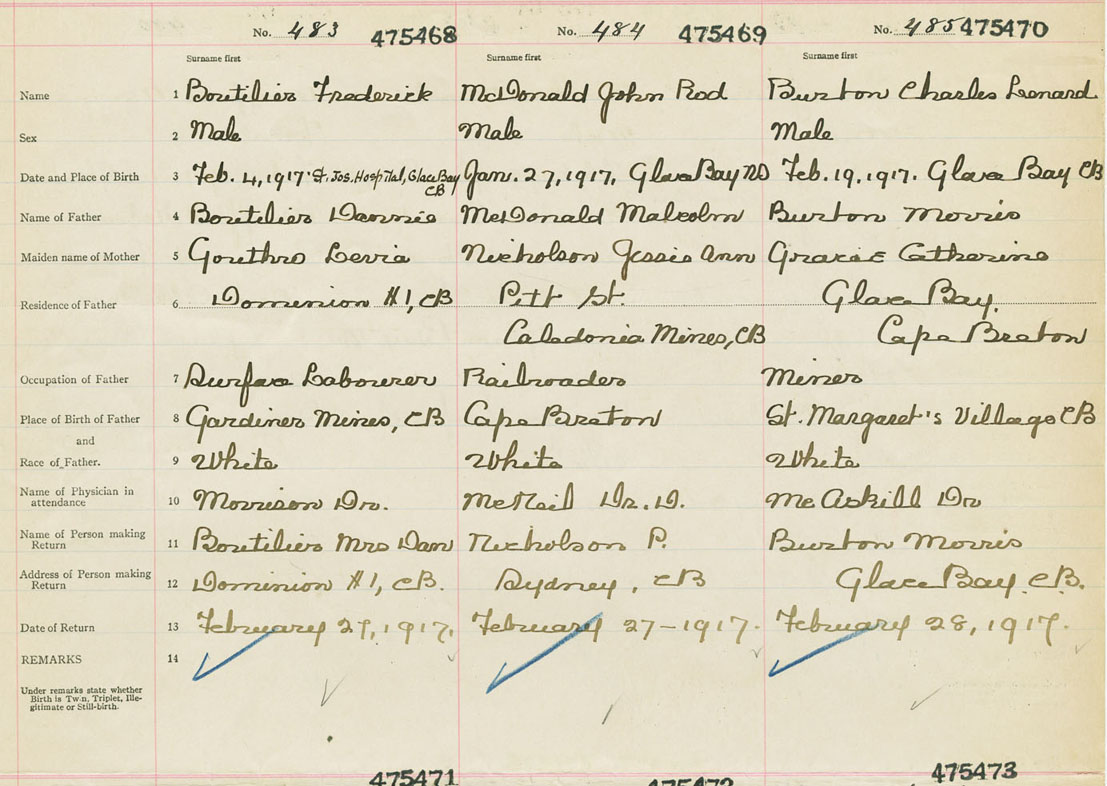 No. 483 475468 No. 484 475469 No. 485 475470
Surname first Surname first Surname first
Name 1 Boutilier Frederick McDonald John Rod Burton Charles Lenard
Sex 2 Male Male Male
Date and Place of Birth 3 Feb. 4, 1917 St. Jos. Hospital, Glace Bay CB Jan. 27, 1917, Glace Bay NS Feb. 19, 1917. Glace Bay CB
Name of Father 4 Boutilier Dannie McDonald Malcolm Burton Morris
Maiden name of Mother 5 Gouthro Levia Nicholson Jessie Ann Gracie Catherine
Residence of Father 6 Dominion #1, CB Pitt St. Glace Bay,
Caledonia Mines, CB Cape Breton
Occupation of Father 7 Surface Labourer Railroader Miner
Place of Birth of Father 8 Gardiner Mines, CB Cape Breton St. Margaret's Village CB
and
Race of Father. 9 White White White
Name of Physician in
attendance 10 Morrison Dr. McNeil Dr. D. McAskill Dr
Name of Person making
Return 11 Boutilier Mrs Dan Nicholson P. Burton Morris
Address of Person making
Return 12 Dominion #1, CB. Sydney, CB Glace Bay, CB.
Date of Return 13 February 27, 1917. February 27-1917. February 28, 1917.
REMARKS 14
Under remarks state whether
Birth is Twin, Triplet, Ille-
gitimate or Still-birth.
475471 475472 475473